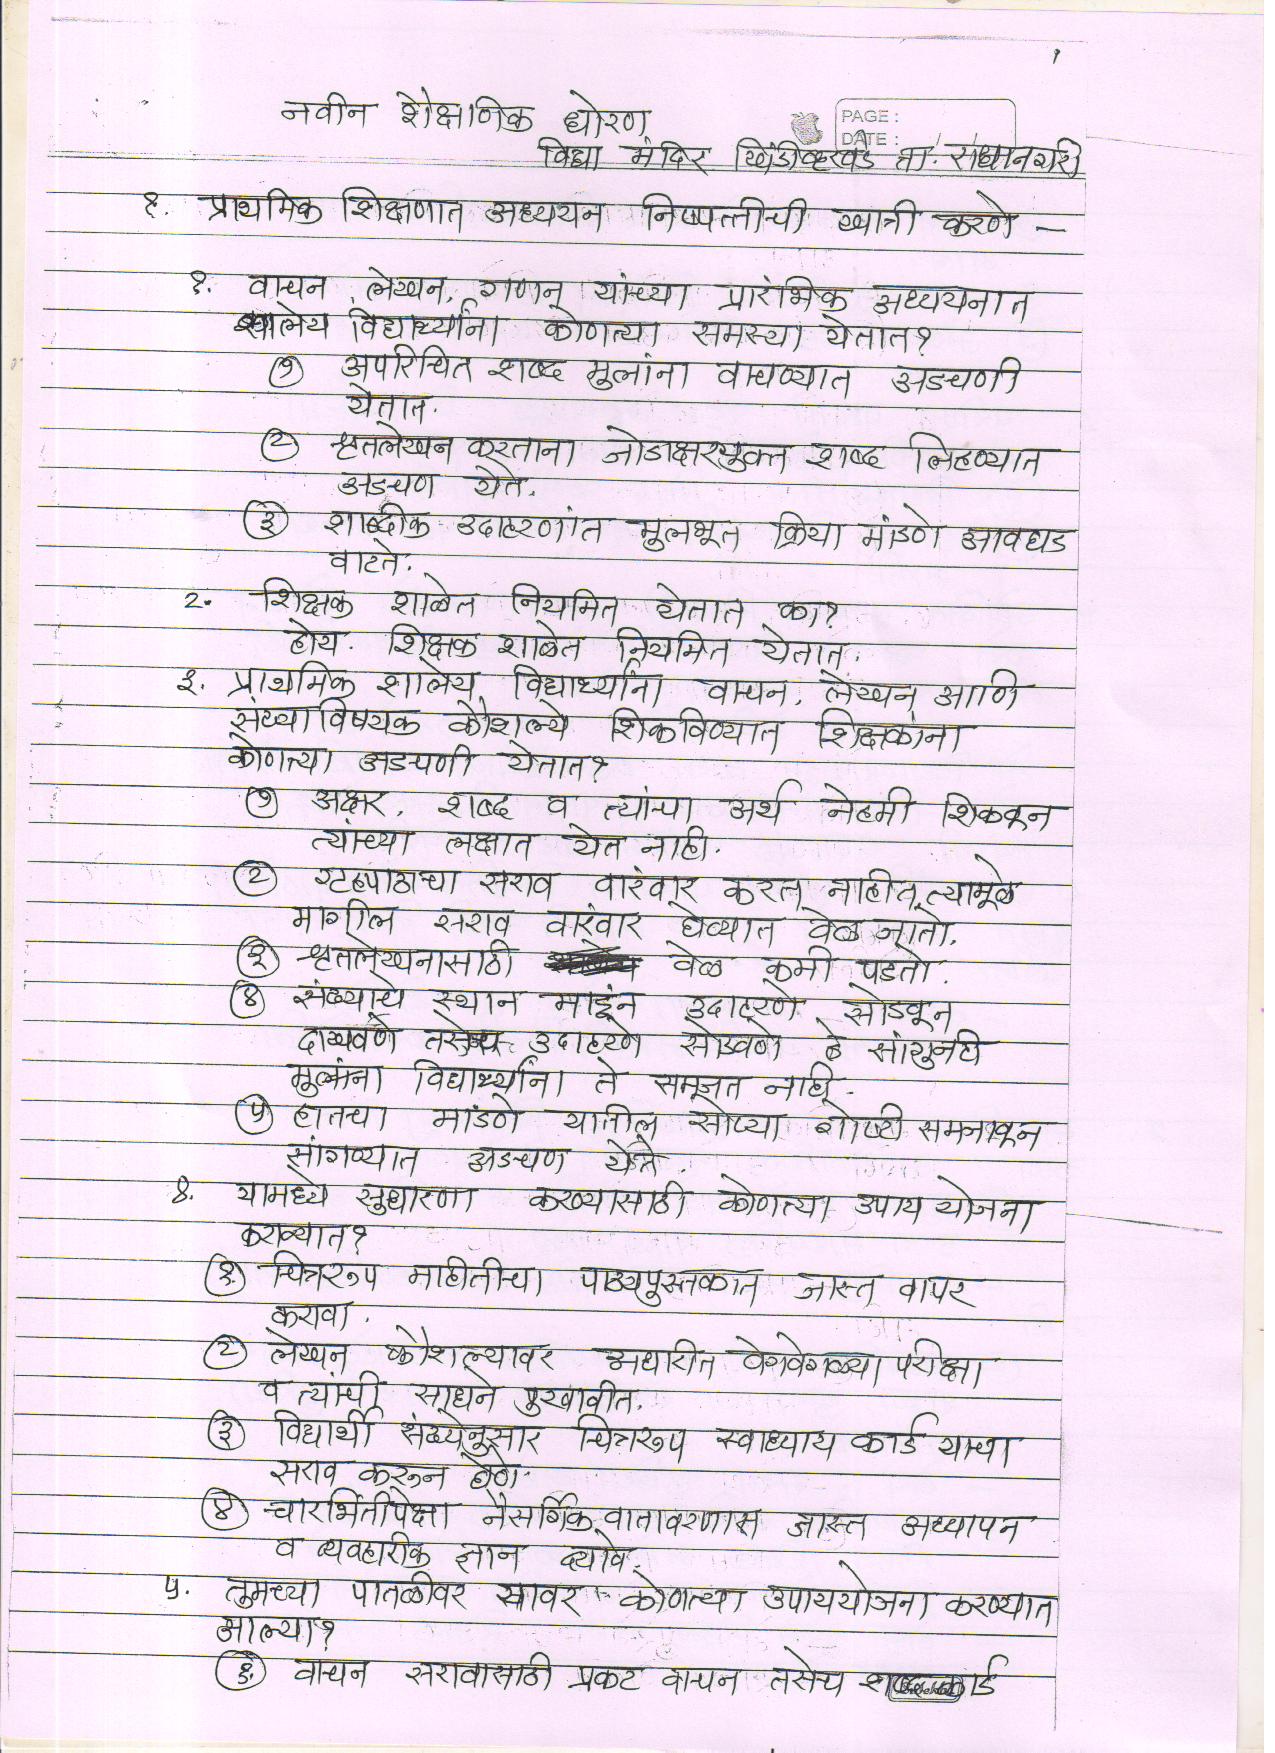 १
नवीन शैक्षणिक धोरण
PAGE :
DATE :
विद्या मंदिर खिंडीव्हरवडे ता. राधानगरी
१. प्राथमिक शिक्षणात अध्ययन निष्पत्तीची खात्री करणे –
१. वाचन, लेखन, गणन यांच्या प्रारंभिक अध्ययनात
शालेय विद्यार्थ्यांना कोणत्या समस्या येतात?
१ अपरिचित शब्द मुलांना वाचण्यात अडचणी
येतात.
२ श्रुतलेखन करताना जोडाक्षरयुक्त शब्द लिहण्यात
अडचण येते.
३ शाब्दीक उदाहरणांत मुलभूत क्रिया मांडणे अवघड
वाटते.
२. शिक्षक शाळेत नियमित येतात का?
होय. शिक्षक शाळेत नियमित येतात.
३. प्राथमिक शालेय विद्यार्थ्यांना वाचन, लेखन आणि
संख्याविषयक कौशल्ये शिकविण्यात शिक्षकांना
कोणत्या अडचणी येतात?
१ अक्षर, शब्द व त्यांचा अर्थ नेहमी शिकवून
त्यांच्या लक्षात येत नाही.
२ गृहपाठाचा सराव वारंवार करत नाहीत, त्यामूळे
मागील सराव वारंवार घेण्यात वेळ जातो.
३ श्रुतलेखनासाठी वेळ कमी पडतो.
४ संख्याचे स्थान मांडून उदाहरणे सोडवून
दाखवणे तसेच उदाहरणे सोडवणे हे सांगूनही
मुलांना विद्यार्थ्यांना ते समजत नाही.
५ हातचा मांडणे यातील सोप्या गोष्टी समजावून
सांगण्यात अडचण येते.
४. यामध्ये सुधारणा करण्यासाठी कोणत्या उपाय योजना
कराव्यात?
१ चित्ररुप माहीतीचा पाठ्यपुस्तकात जास्त वापर
करावा.
२ लेखन कौशल्यावर अधारीत वेगवेगळ्या परीक्षा
व त्यांची साधने पुरवावीत.
३ विद्यार्थी संख्येनुसार चित्ररुप स्वाध्याय कार्ड याचा
सराव करून घेणे.
४ चारभिंतीपेक्षा नैसर्गिक वातावरणास जास्त अध्यापन
व व्यवहारीक ज्ञान द्यावे.
५. तुमच्या पातळीवर यावर कोणत्या उपाययोजना करण्यात
आल्या?
१ वाचन सरावासाठी प्रकट वाचन तसेच शब्दकार्ड